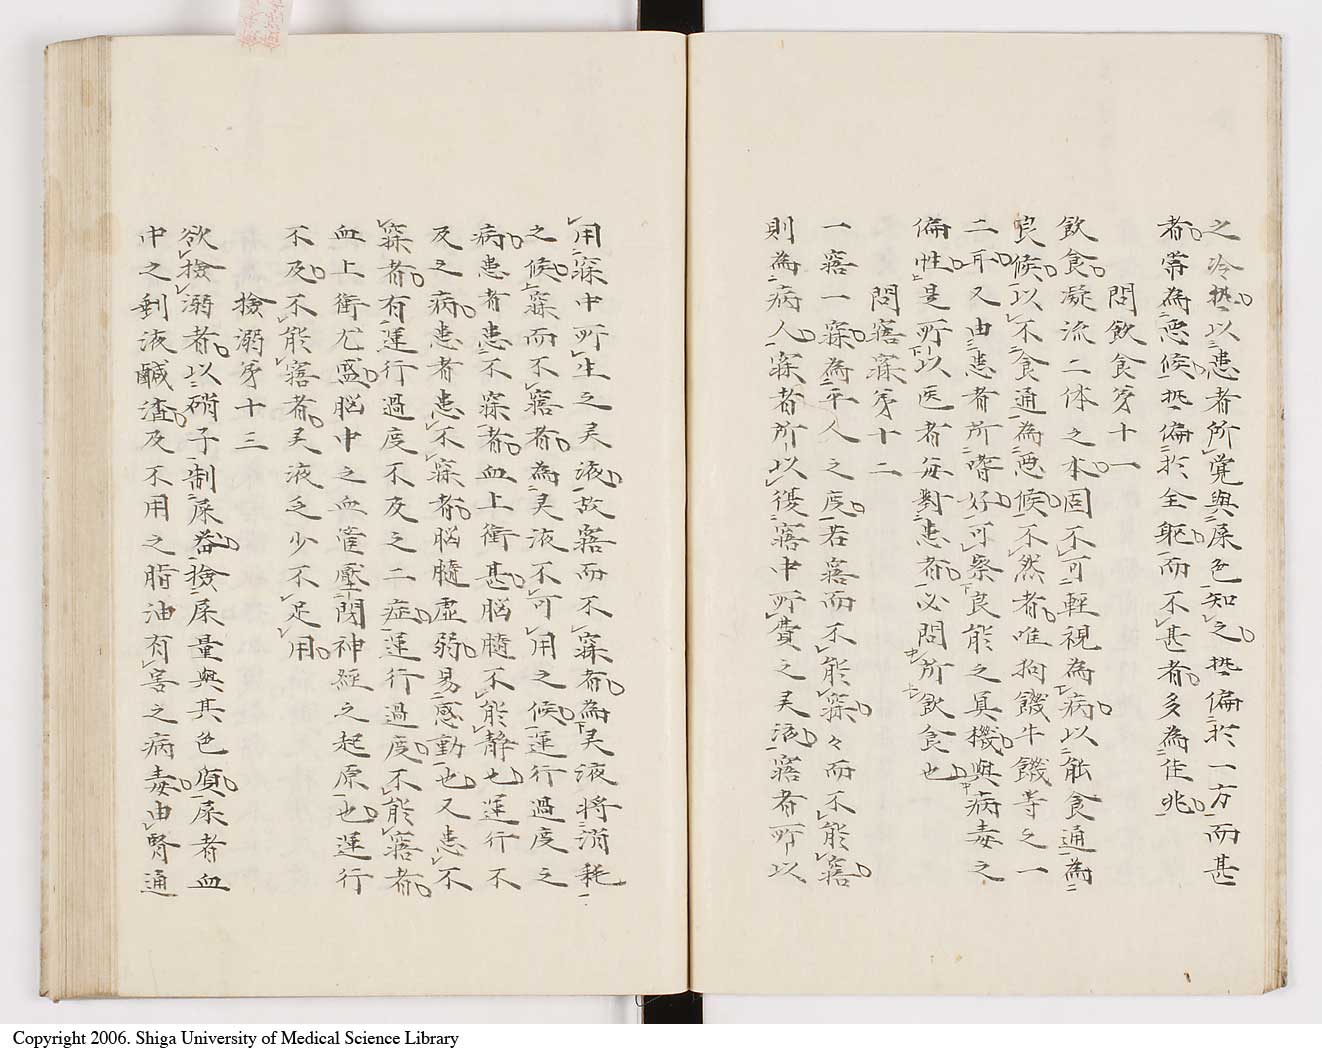 之冷熱以患者所覚與尿色知之熱偏於一方而甚
者常為悪候熱偏於全軀而不甚者多為佳兆
問飲食第十一
飲食凝流二体之本固不可軽視為病以能食通為
良候以不食通為悪候不然者唯拘饑牛饑等之一
二耳又由患者所嗜好可察良能之真機與病毒之
偏性是所以医者毎対患者必問所飲食也
問寤寐第十二
一寤一寐為平人之度若寤而不能寐々而不能寤
則為病人寐者所以復寤中所費之灵液寤者所以
用寐中所生之灵液故寤而不寐者為灵液将消耗
之候寐而不寤者為灵液不可用之候運行過度之
病患者患不寐者血上衝甚脳髄不能静也運行不
及之病患者患不寐者脳髄虚弱易感動也又患不
寐者有運行過度不及之二症運行過度不能寤者
血上衝尤盛脳中之血管壓閉神経之起原也運行
不及不能寤者灵液乏少不足用
検溺第十三
欲検溺者以硝子制尿器検尿量與其色質尿者血
中之剰液鹹渣及不用之脂油有害之病毒由腎通
Copyright 2006. Shiga University of Medical Science Library